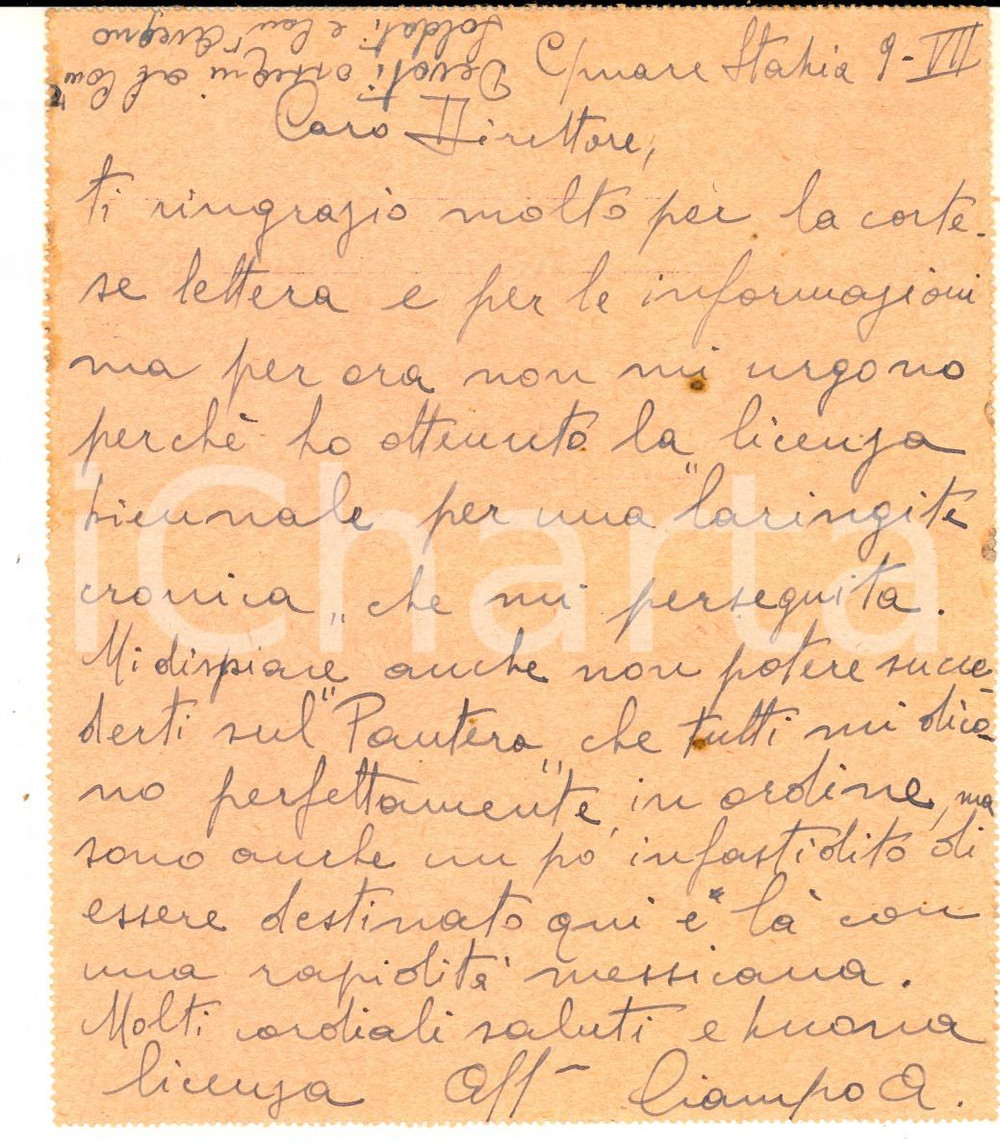 C/mare Stabia 9-VII
Caro Direttore,
ti ringrazio molto per la corte-
se lettera e per le informazioni
ma per ora non mi urgono
perchè ho ottenuto la licenza
biennale per una "laringite
cronica" che mi perseguita.
Mi dispiace anche non potere succe-
derti sul "Pantera" che tutti mi dico-
no perfettamente in ordine, ma
sono anche un pò infastidito di
essere destinato qui e là con
una rapidità messicana.
Molti cordiali saluti e buona
licenza Aff Ciampo A.
Devoti ossequi al Com
Soldati e Cav
iCharta